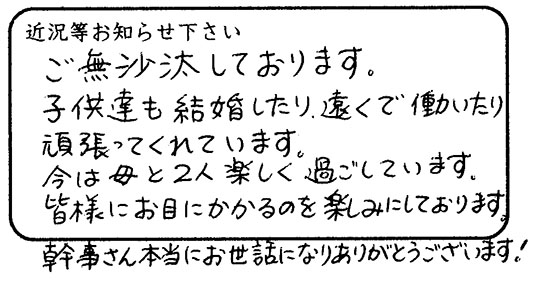 近況等お知らせ下さい
ご無沙汰しております。
子供達も結婚したり、遠くで働いたり
頑張ってくれています。
今は母と2人楽しく過ごしています。
皆様にお目にかかるのを楽しみにしております。
幹事さん本当にお世話になりありがとうございます!